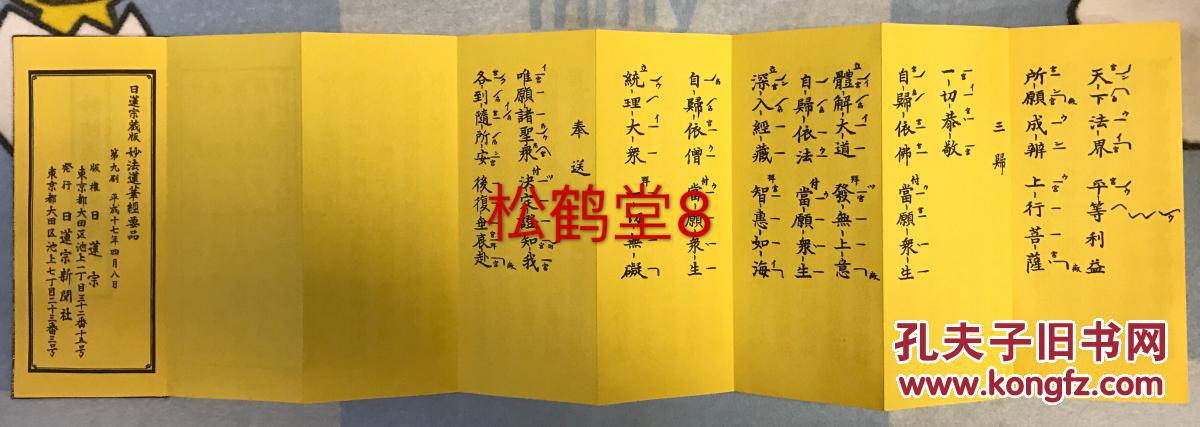 天下法界 平等利益
所願成辨 上行菩薩
三歸
一切恭敬
自歸依佛 當願衆生
體解大道 發無上意
自歸依法 當願衆生
深入經藏 智惠如海
自歸依僧 當願衆生
統理大衆 一切無礙
奉送
唯願諸聖衆 決定證知我
各到隨所安 後復垂哀赴
日蓮宗蔵版 妙法蓮華經要品
第九刷 平成十七年四月八日
版権 日蓮宗
東京都大田区池上一丁目三十二番十五号
発行 日蓮宗新聞社
東京都大田区池上七丁目二十三番三号
松鹤堂8
孔夫子旧书网
www.kongfz.com